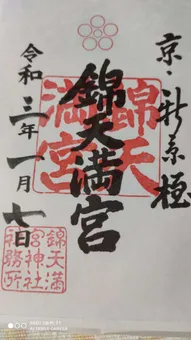 京・新京極
錦天満宮
錦天
満宮
令和三年一月七日
錦天満
宮神社
社務所